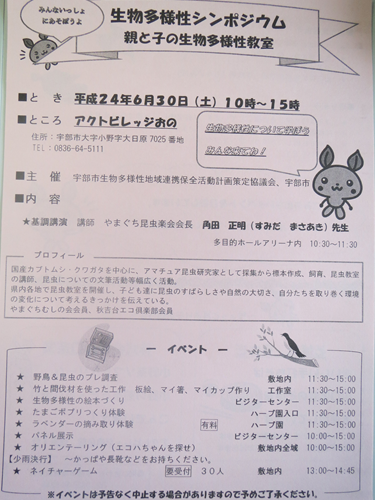 みんないっしょ
にあそぼうよ
生物多様性シンポジウム
親と子の生物多様性教室
■と き 平成24年6月30日(土)10時～15時
■ところ アクトビレッジおの
住所：宇部市大字小野字大日原7025番地
TEL：0836-64-5111
生物多様性について学ぼう
みんな来てね！
■主 催 宇部市生物多様性地域連携保全活動計画策定協議会、宇部市
■内 容
★基調講演 講師 やまぐち昆虫楽会会長 角田 正明(すみだ まさあき)先生
多目的ホールアリーナ内 10:30～11:30
プロフィール
国産カブトムシ・クワガタを中心に、アマチュア昆虫研究家として採集から標本作成、飼育、昆虫教室
の講師、昆虫についての文筆活動等幅広く活動。
県内各地で昆虫教室を開催し、子ども達に昆虫のすばらしさや自然の大切さ、自分たちを取り巻く環境
の変化について考えるきっかけを伝えている。
やまぐちむしの会会員、秋吉台エコ倶楽部会員
― イベント ―
★ 野鳥&昆虫のプレ調査 敷地内 11:30～15:00
★ 竹と間伐材を使った工作 板絵、マイ箸、マイカップ作り 工作室 11:30～15:00
★ 生物多様性の絵本づくり ビジターセンター 11:30～15:00
★ たまごポプリつくり体験 ハーブ園入口 11:30～15:00
★ ラベンダーの摘み取り体験 有料 ハーブ園 11:30～15:00
★ パネル展示 ビジターセンター 10:00～15:00
★ オリエンテーリング(エコハちゃんを探せ) 敷地内全域 10:00～15:00
【少雨決行】 ～かっぱや長靴などをお持ちください。
★ ネイチャーゲーム 要受付 30人 敷地内 13:00～14:45
※イベントは予告なく中止する場合がありますので予めご了承ください。